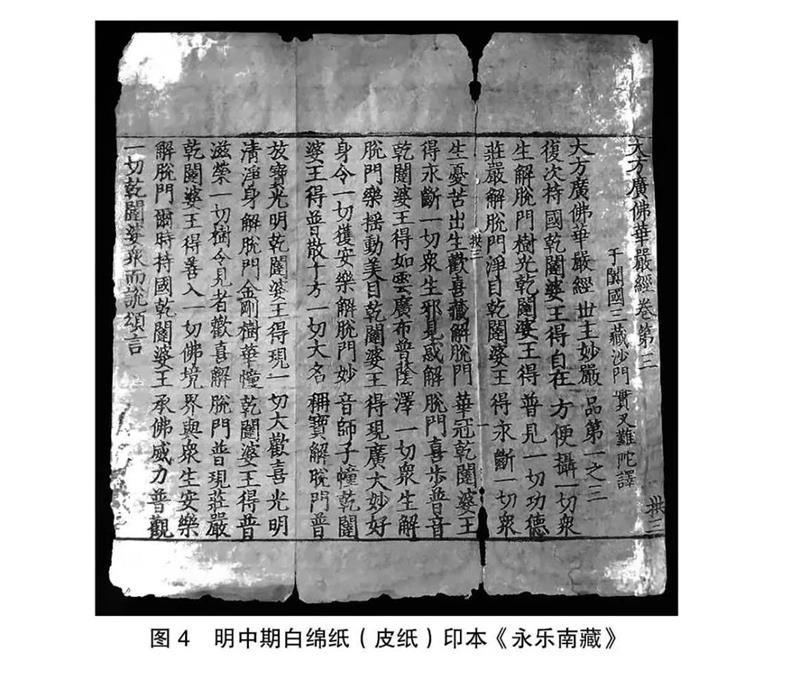 大方廣佛華嚴經卷第三 拱三
于闐國三藏沙門 實叉難陀譯
大方廣佛華嚴經 世主妙嚴品第一之三
復次持國乾闥婆王得自在方便攝一切衆
生解脫門樹光乾闥婆王得普見一切功德
莊嚴解脫門淨目乾闥婆王得永斷一切衆
拱三
生憂苦出生歡喜藏解脫門華冠乾闥婆王
得永斷一切衆生邪見惑解脫門喜步普音
乾闥婆王得如雲廣布普蔭澤一切衆生解
脫門樂搖動美目乾闥婆王得現廣大妙好
身令一切獲安樂解脫門妙音師子幢乾闥
婆王得普散十方一切大名稱寶解脫門普
放寶光明乾闥婆王得現一切大歡喜光明
清淨身解脫門金剛樹華幢乾闥婆王得普
滋榮一切樹令見者歡喜解脫門普現莊嚴
乾闥婆王得善入一切佛境界與衆生安樂
解脫門爾時持國乾闥婆王承佛威力普觀
一切乾闥婆衆而說頌言
图 4 明中期白绵纸（皮纸）印本《永乐南藏》